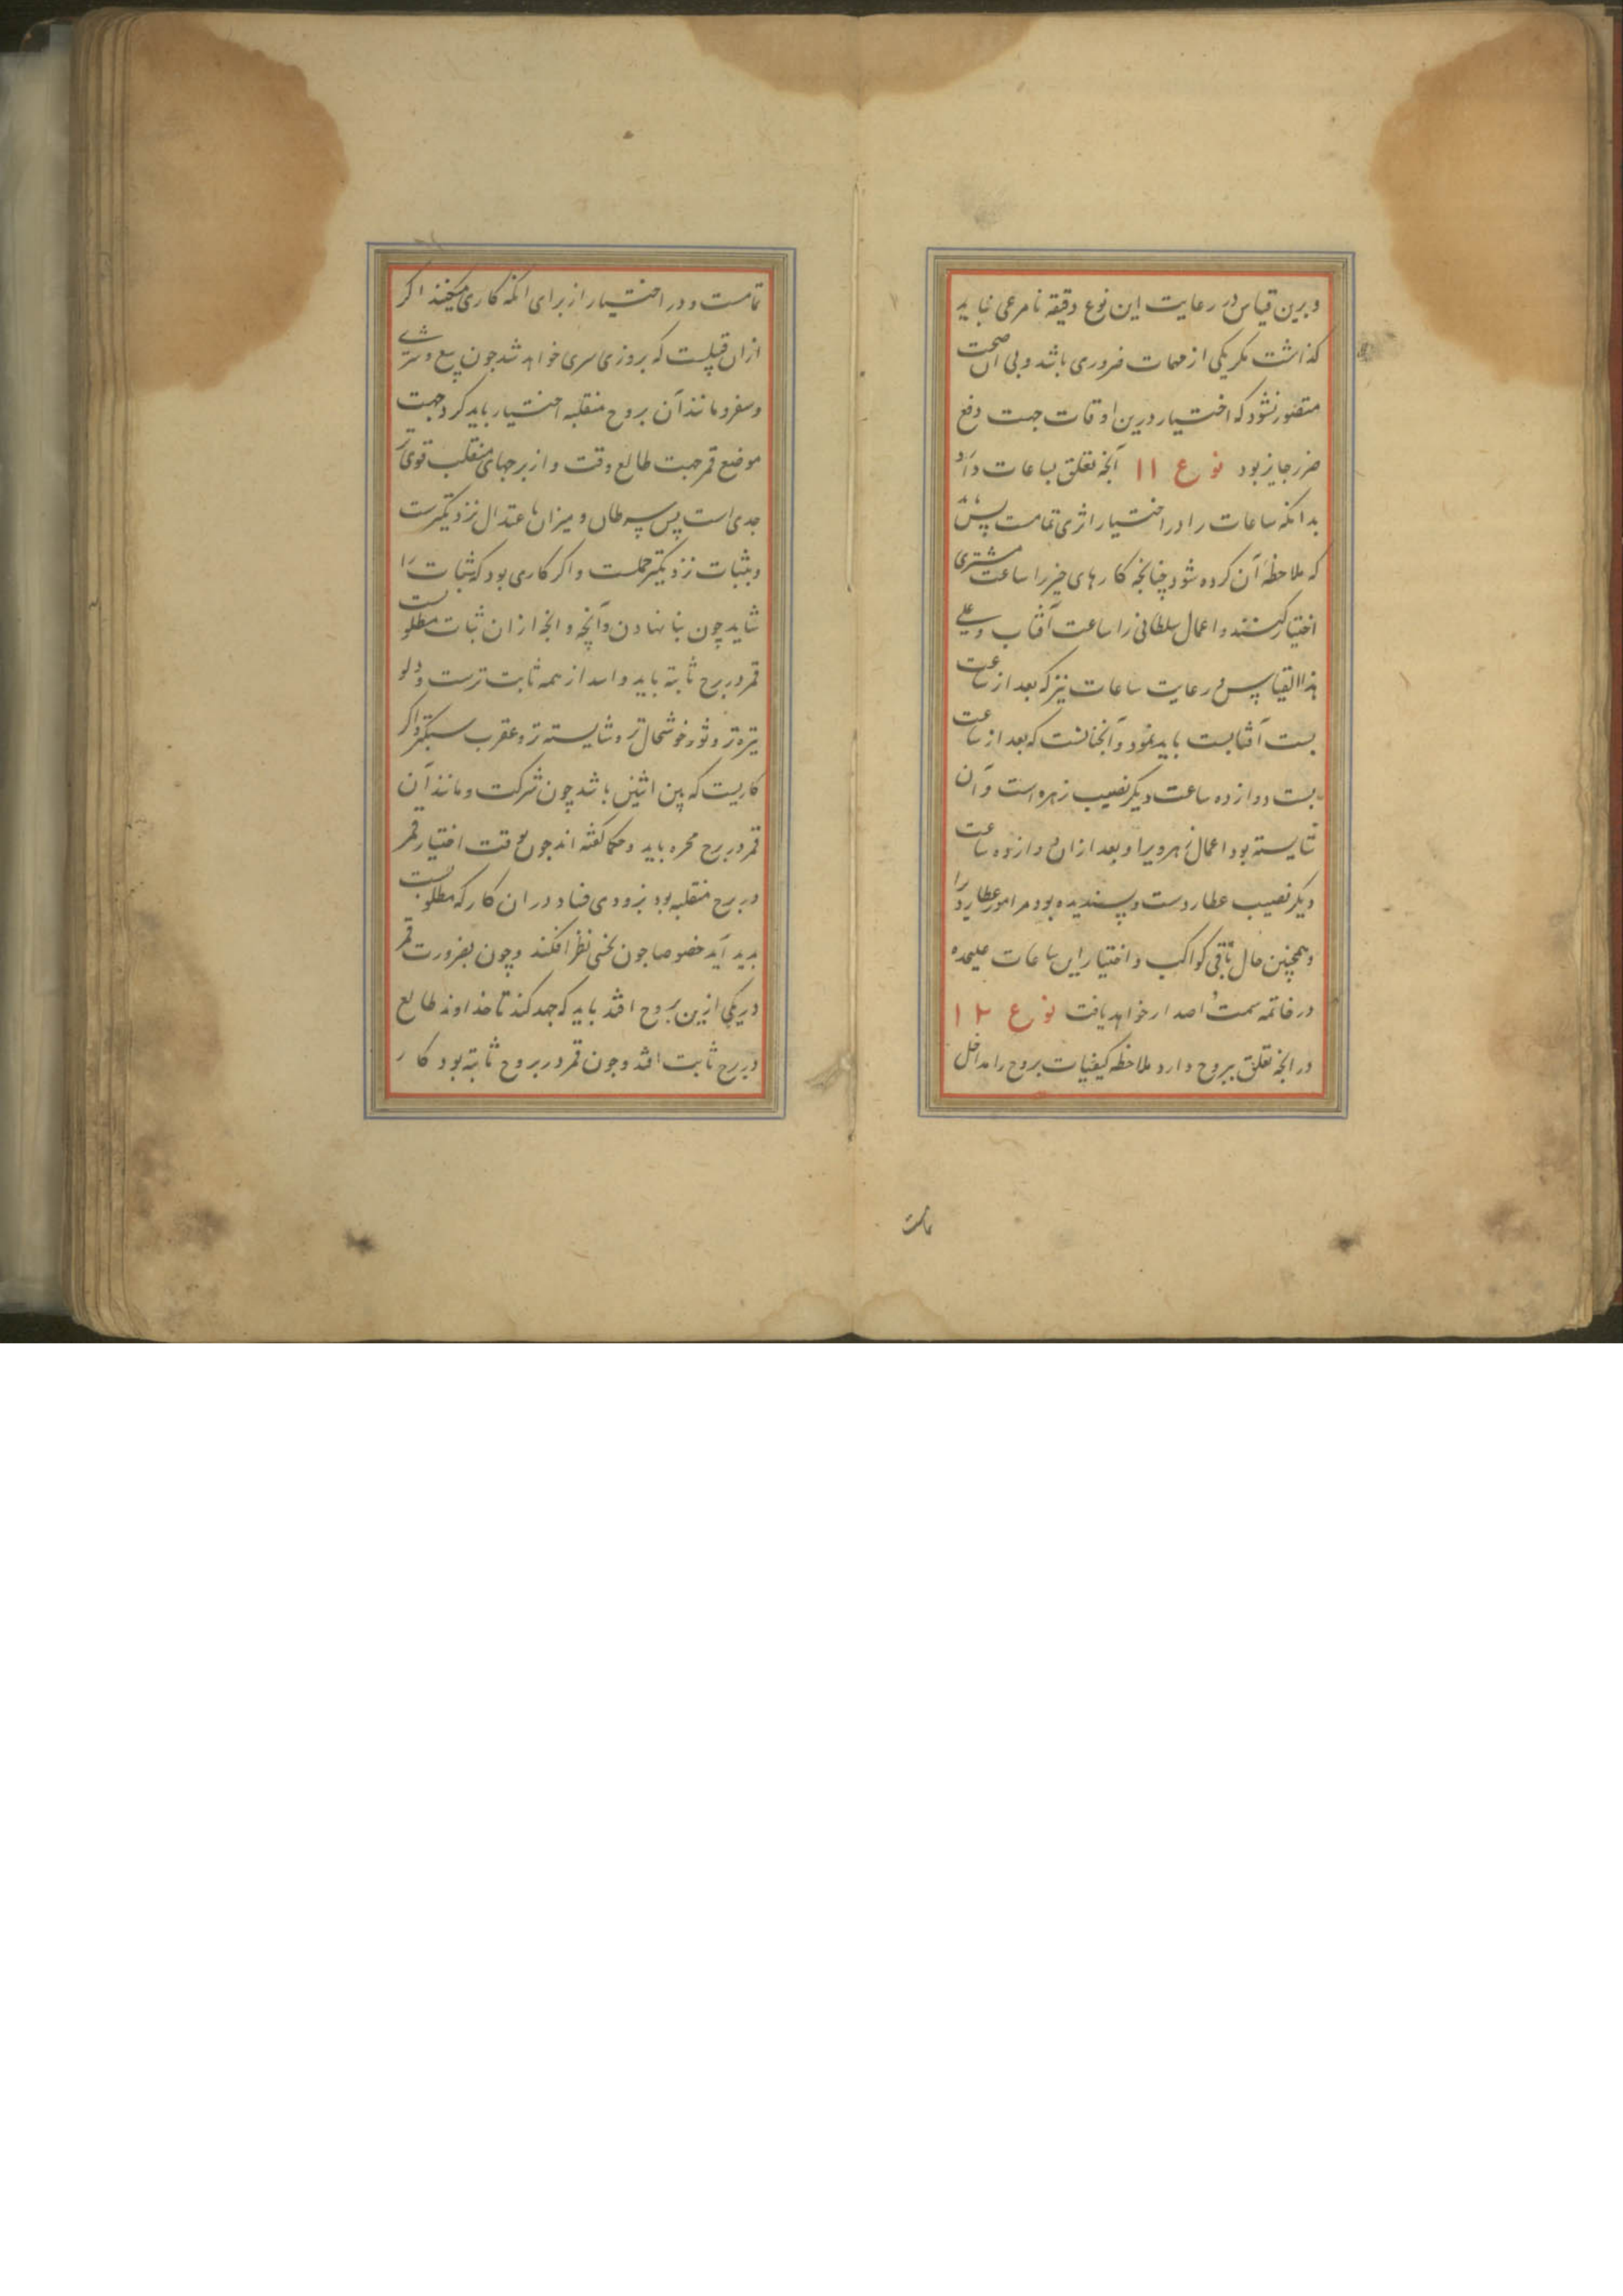 و برین قیاس در رعایت این نوع دقیقه نامرعی نباید
گذاشت مگر یکی از مهمات ضروری باشد و بی آن صحت
متصور نشود که اختیار درین اوقات جهت دفع
ضرر جایز بود نوع ۱۱ آنچه تعلق بساعات دارد
بدانکه ساعات را در اختیار اثری تمامست پس باید
که ملاحظهٔ آن کرده شود چنانچه کارهای خیر را ساعت مشتری
اختیار کنند و اعمال سلطانی را ساعت آفتاب و علی
هذا القیاس و رعایت ساعات نیز که بعد از ساعت
بست آفتابست باید نمود و آنچنانست که بعد از ساعت
بست دوازده ساعت دیگر نصیب زهره است و آن
شایسته بود اعمال زهروی را و بعد ازان دوازده ساعت
دیگر نصیب عطاردست و پسندیده بود مر امور عطارد را
و همچنین حال باقی کواکب و اختیار این ساعات علیحده
در خاتمه سمت اصدار خواهد یافت نوع ۱۲
در آنچه تعلق ببروج دارد ملاحظه کیفیات بروج را مداخل
تمامست
تمامست و در اختیار از برای آنکه کاری میکنند اگر
ازان قبیلست که بروزی سری خواهد شد چون بیع و شری
و سفر و مانند آن بروج منقلبه اختیار باید کرد جهت
موضع قمر جهت طالع وقت و از برجهای منقلب قوی‌تر
جدی است پس سرطان و میزان باعتدال نزدیکترست
و بثبات نزدیکتر حملست و اگر کاری بود که ثبات را
شاید چون بنا نهادن و آنچه و آنچه ازان ثبات مطلوبست
قمر در برج ثابته باید و اسد از همه ثابت ترست و دلو
تیره‌تر و ثور خوشحال‌تر و شایسته‌تر و عقرب سبکتر و اگر
کاریست که بین اثنین باشد چون شرکت و مانند آن
قمر در برج مجره باید و حکما گفته‌اند چون بوقت اختیار قمر
در برج منقلبه بود بزودی فساد دران کار که مطلوبست
پدید آید خصوصا چون نحسی نظر افکند و چون بضرورت قمر
در یکی ازین بروج افتد باید که جهد کند تا خداوند طالع
در برج ثابت افتد و چون قمر در بروج ثابته بود کار